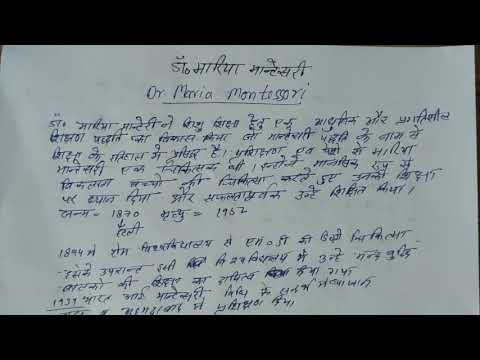 डॉ. मारिया मान्टेसरी
Dr Maria Montessori
डॉ. मारिया मान्टेसरी ने शिशु शिक्षा हेतु एक आधुनिक और प्रगतिशील
शिक्षण पद्धति का विकास किया जो मान्टेसरी पद्धति के नाम से
शिक्षा के इतिहास में प्रसिद्ध है। प्रशिक्षण एवं पेशे से मारिया
मान्टेसरी एक चिकित्सक थी। इन्होंने मानसिक रूप से
विकलांग बच्चों की चिकित्सा करते हुए उनकी शिक्षा
पर ध्यान दिया और सफलतापूर्वक उन्हें शिक्षित किया।
जन्म = 1870 मृत्यु = 1952
इटली
1894 में रोम विश्वविद्यालय से एम.डी की डिग्री चिकित्सा
इसके उपरान्त इसी विश्वविद्यालय में उन्हें मन्द बुद्धि
बालकों की शिक्षा का दायित्व दिया गया
1939 भारत आई मान्टेसरी विधि के
व अहमदाबाद में प्रशिक्षण दिया